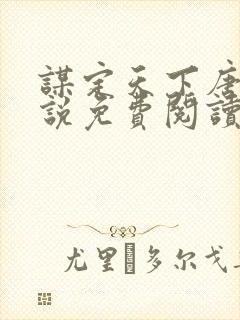 謀定天下唐
説免費閱讀
尤里�多尔戈